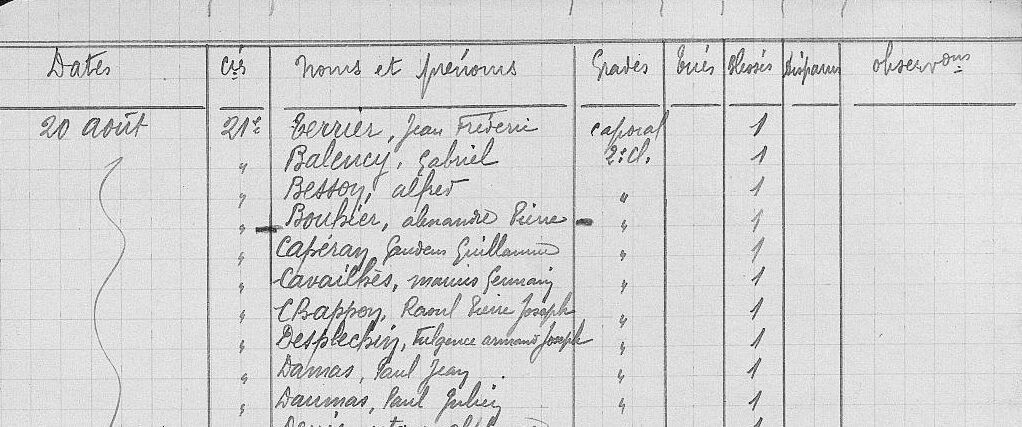 Dates Cies Noms et prénoms Grades Tués Blessés Disparus observons
20 août 21e Terrier, Jean Frédéric caporal 1
" Balency, Gabriel 2e Cl. 1
" Bessoy, alfred " 1
" Bouhier, alexandre Pierre " 1
" Capéran Gaudens Guillaume " 1
" Cavailhès, marius Germain " 1
" Chappoy, Raoul Pierre Joseph " 1
" Desplechin, Fulgence armand Joseph " 1
" Damas, Paul Jean " 1
" Daumas, Paul Julien " 1